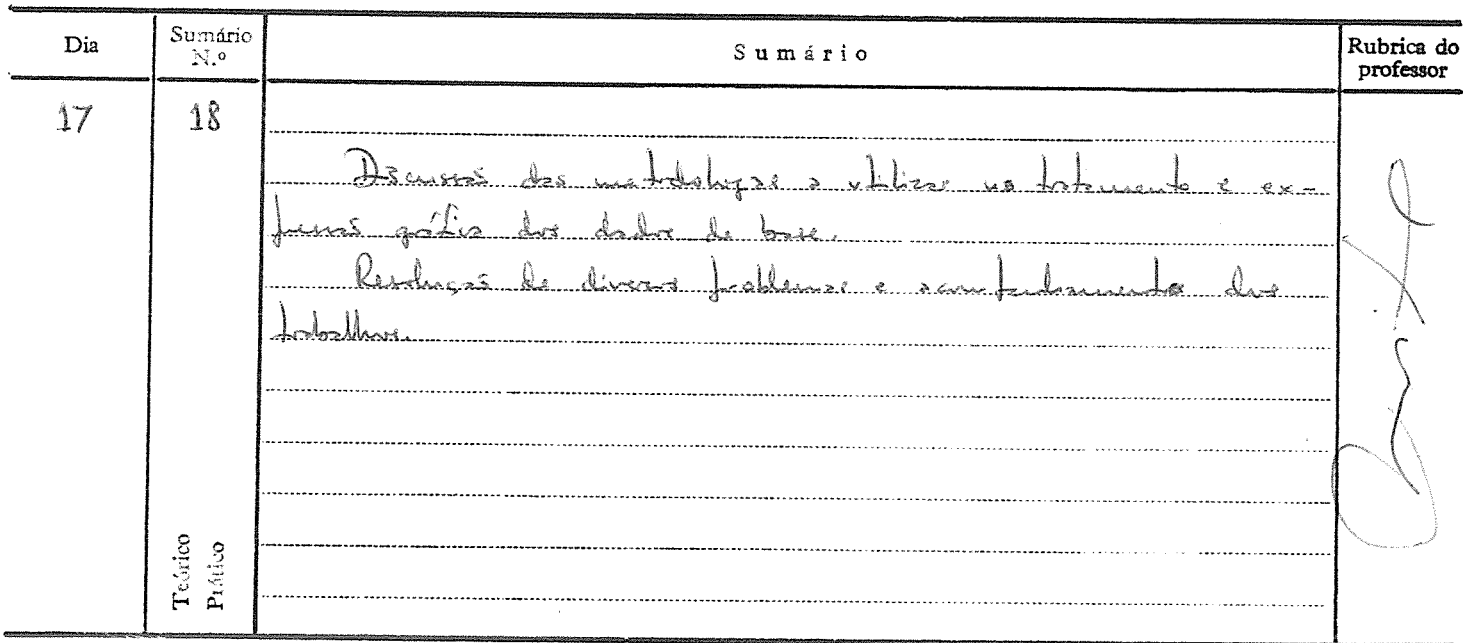 Dia
Sumário N.º
Sumário
Rubrica do professor
17
18
Discussão das metodologias a utilizar no tratamento e ex-
pressão gráfica dos dados de base.
Resolução de diversos problemas e acompanhamento dos
trabalhos.
Teórico
Prático